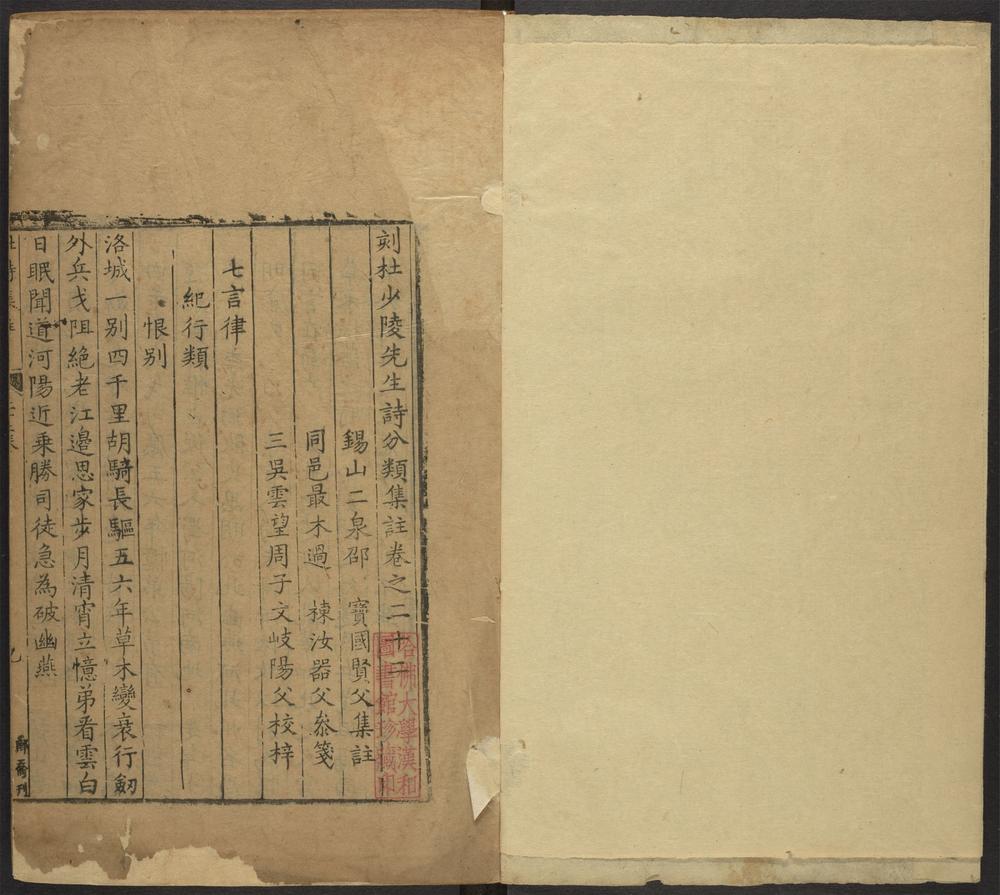 刻杜少陵先生詩分類集註卷之二十三
錫山二泉邵 寶國賢父集註
同邑最木過 棟汝器父叅箋
三吳雲望周子文岐陽父校梓
哈佛大學漢和
圖書館珍藏印
七言律
紀行類
恨别
洛城一别四千里胡騎長驅五六年草木變衰行劒
外兵戈阻絶老江邊思家步月清宵立憶弟看雲白
日眠聞道河陽近乗勝司徒急為破幽燕